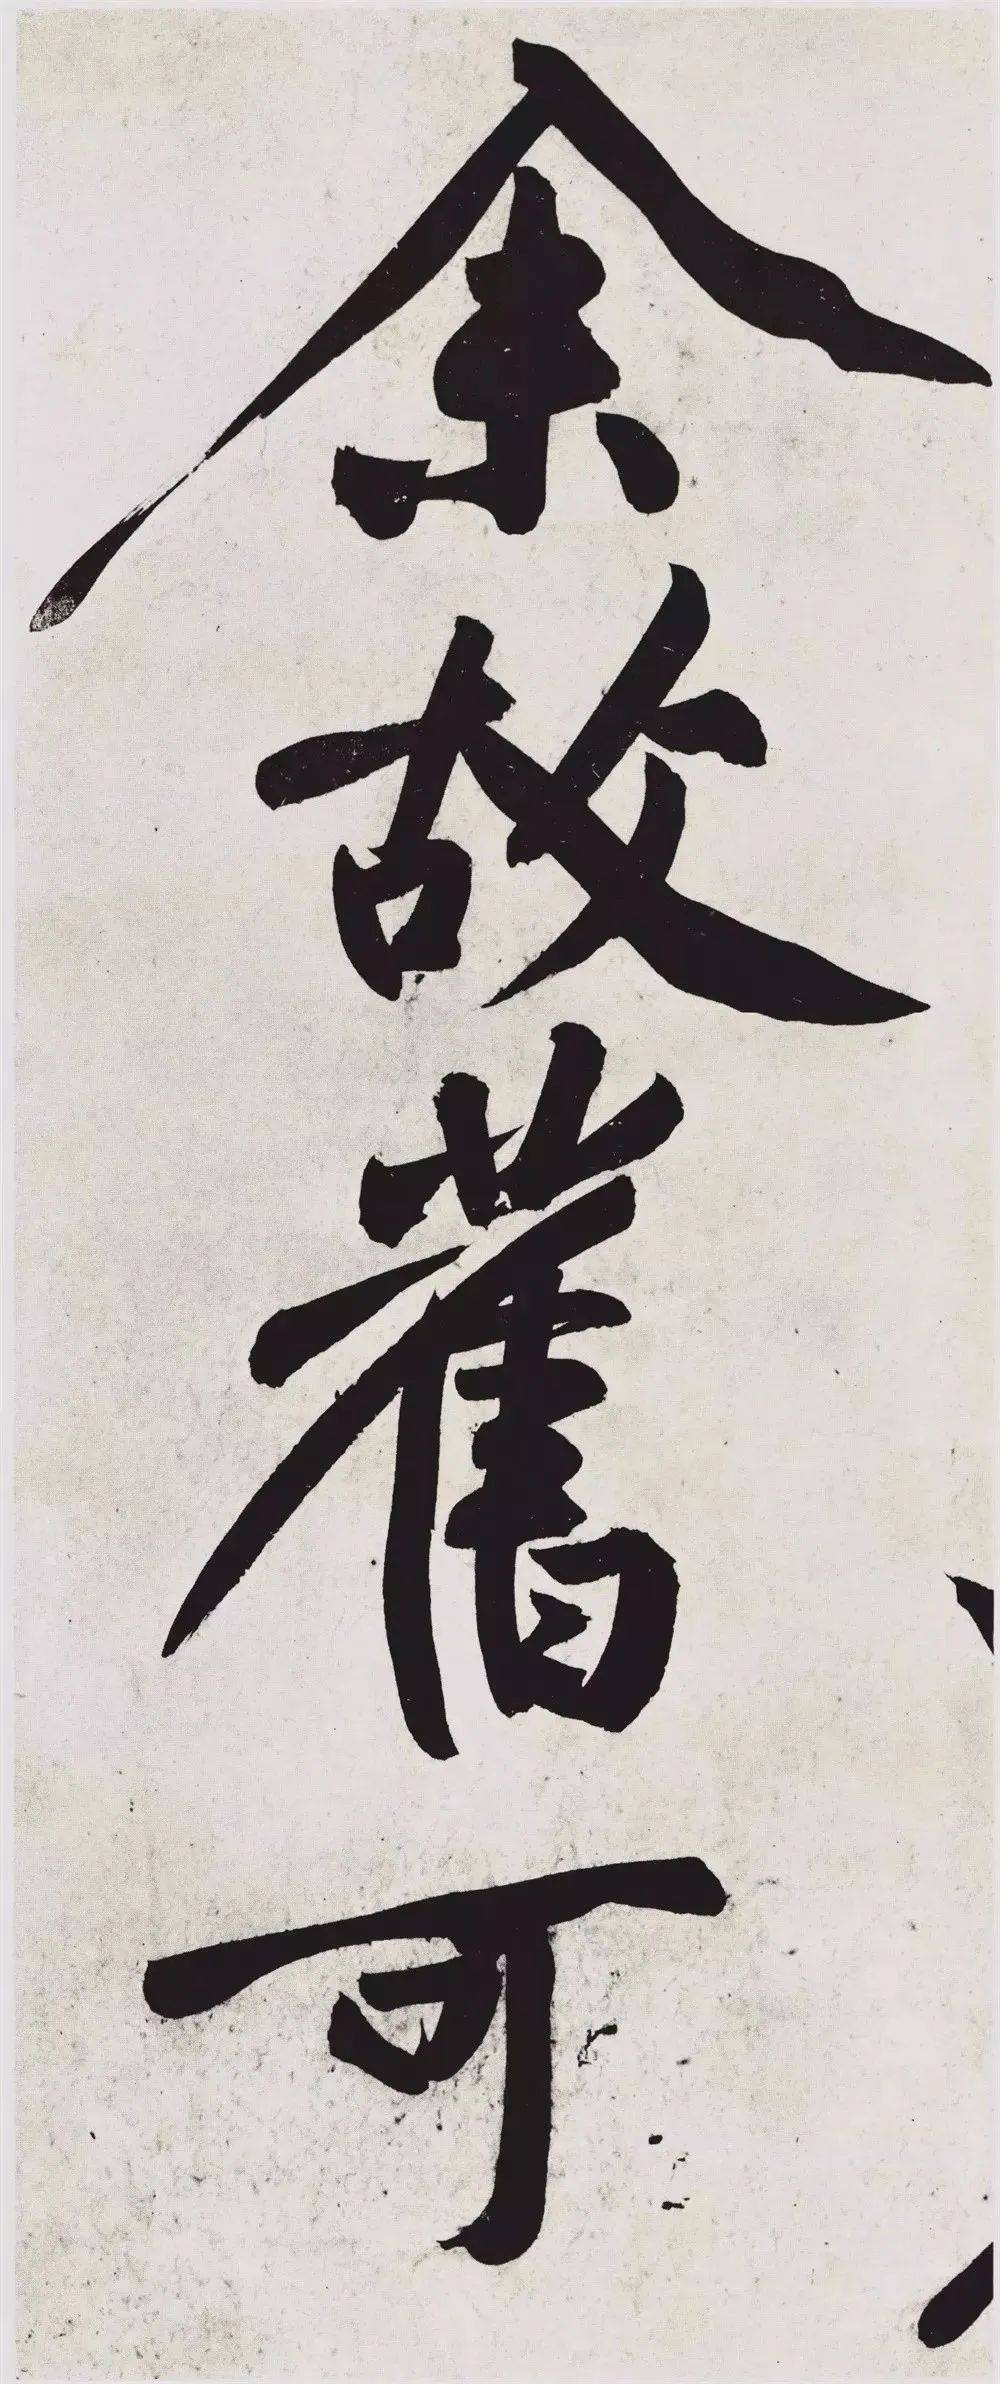 余故舊可